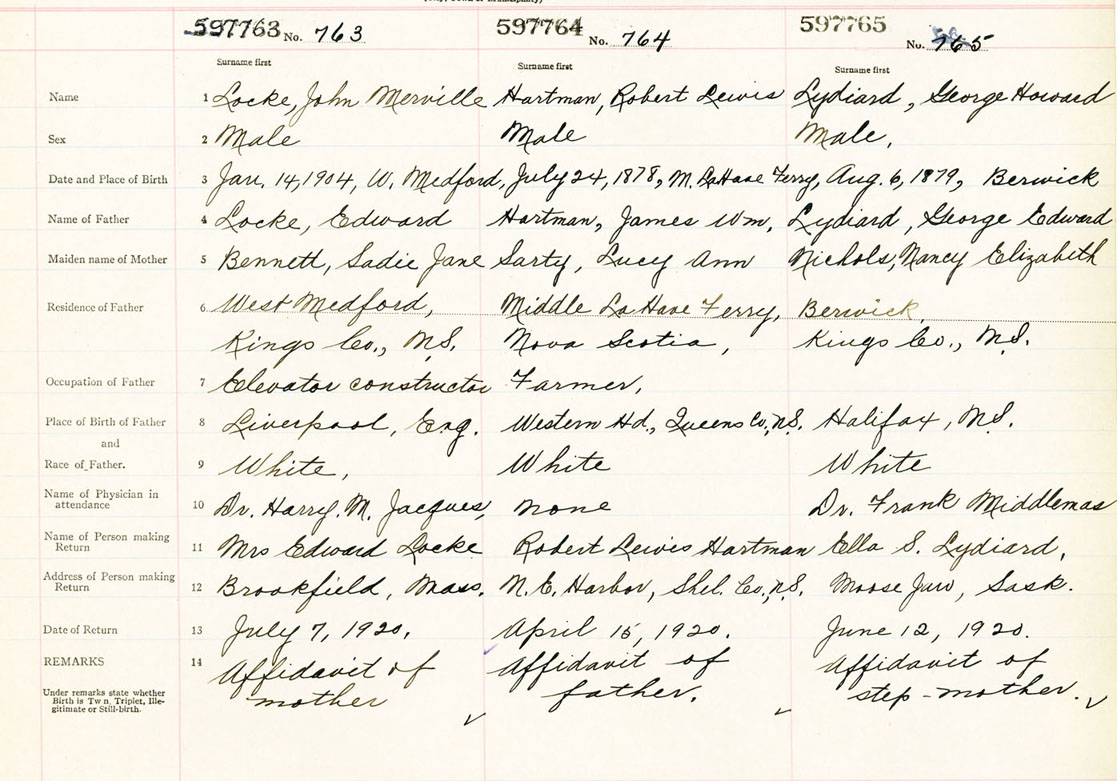 597763 No. 763 597764 No. 764 597765 No. 765
Surname first Surname first Surname first
Name 1 Locke, John Merville Hartman, Robert Lewis Lydiard, George Howard
Sex 2 Male Male Male,
Date and Place of Birth 3 Jan. 14, 1904, W. Medford, July 24, 1878, M. LaHave Ferry, Aug. 6, 1879, Berwick
Name of Father 4 Locke, Edward Hartman, James Wm, Lydiard, George Edward
Maiden name of Mother 5 Bennett, Sadie Jane Sarty, Lucy Ann Nichols, Nancy Elizabeth
Residence of Father 6 West Medford, Middle LaHave Ferry, Berwick,
Kings Co., N.S. Nova Scotia, Kings Co., N.S.
Occupation of Father 7 Elevator constructor Farmer,
Place of Birth of Father 8 Liverpool, Eng. Western Hd., Queens Co., N.S. Halifax, N.S.
and
Race of Father. 9 White, White White
Name of Physician in
attendance 10 Dr. Harry. M. Jacques, none Dr. Frank Middlemas
Name of Person making
Return 11 Mrs Edward Locke Robert Lewis Hartman Ella S. Lydiard,
Address of Person making
Return 12 Brookfield, Mass. N.E. Harbor, Shel. Co., N.S. Moose Jaw, Sask.
Date of Return 13 July 7, 1920. April 15, 1920. June 12, 1920.
REMARKS 14 Affidavit of Affidavit of Affidavit of
mother father. step-mother.
Under remarks state whether
Birth is Tw n, Triplet, Ille-
gitimate or Still-birth.